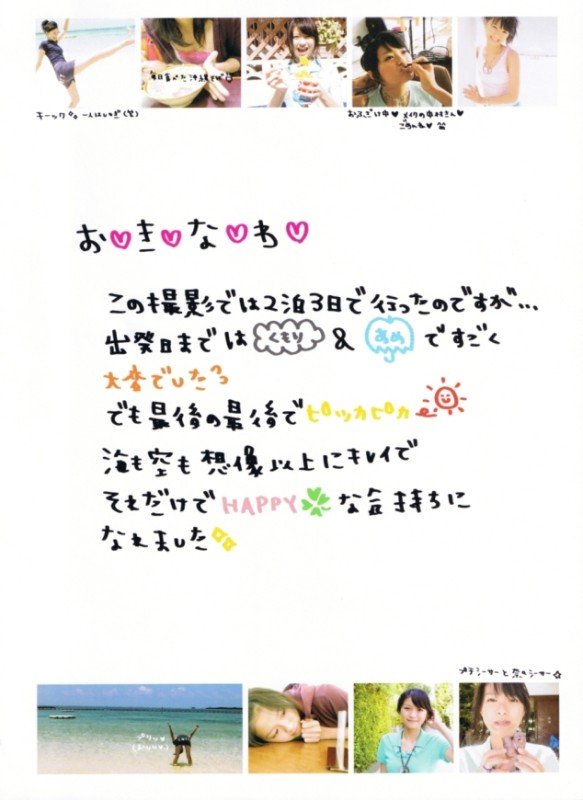 毎日食べた沖縄そば
キーック 一人はしゃぎ(笑)
おふざけ中♥ メイクの中村さん♥
ごめんね♥
お♡き♡な♡わ♡
この撮影では2泊3日で行ったのですが…
出発日までは くもり & あめ ですごく
大変でしたっ
でも最後の最後でピッカピカ
海も空も想像以上にキレイで
それだけでHAPPY🍀な気持ちに
なれました
プチシーサーと奈々シーサー☆